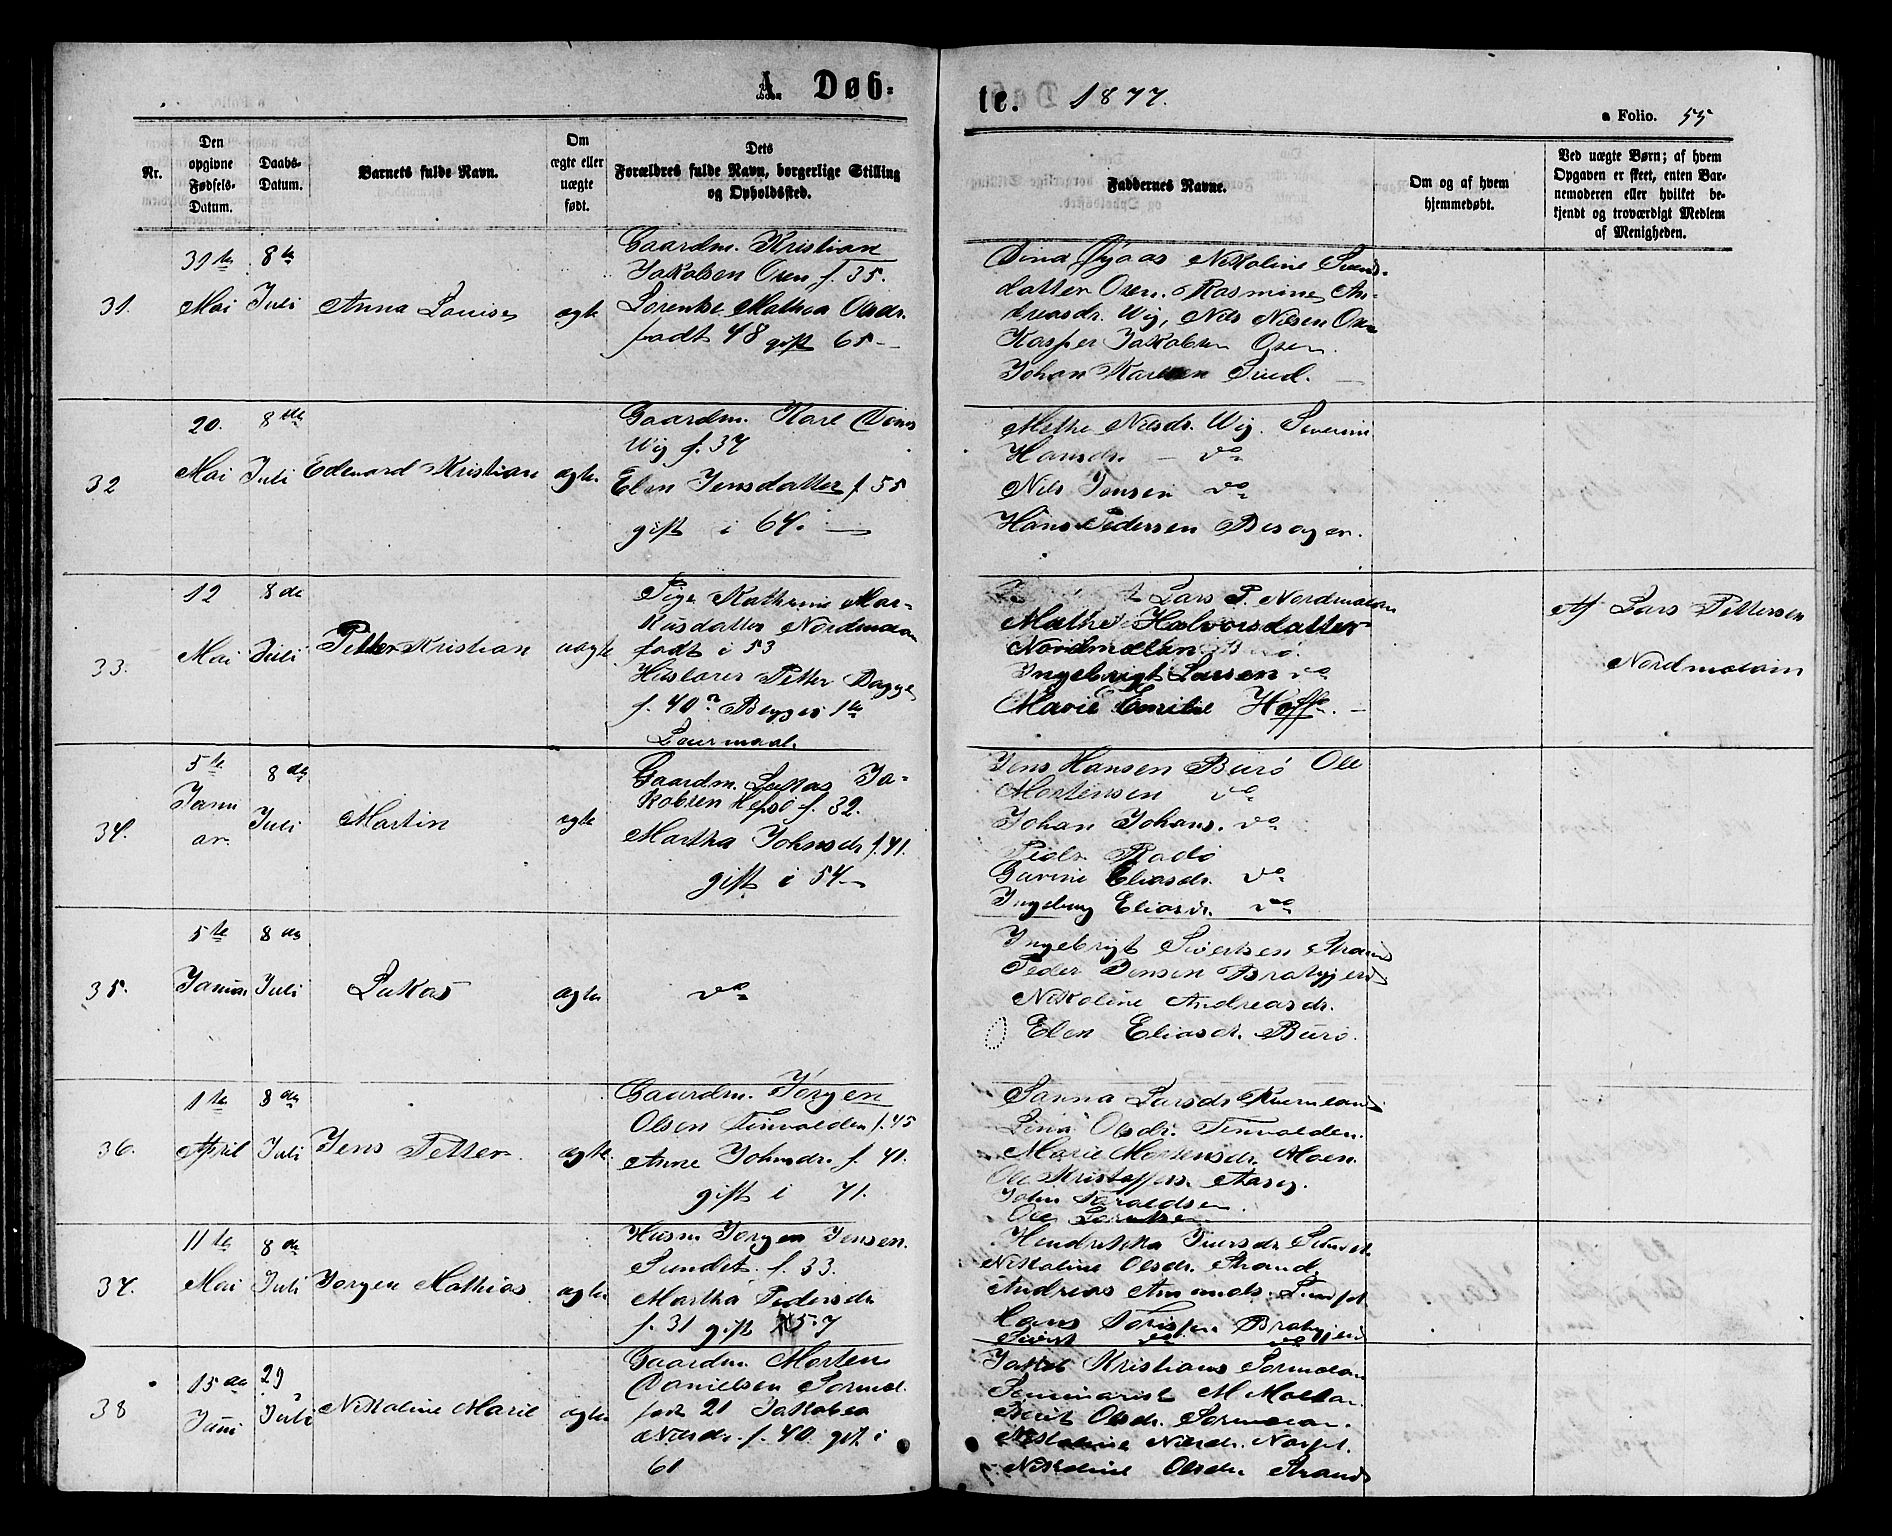 A. Døb=
te. 1877.
a Folio. 55
Nr.
Den opgivne Fødsels-Datum.
Daabs-Datum.
Barnets fulde Navn.
Om ægte eller uægte født.
Dets Forældres fulde Navn, borgerlige Stilling og Opholdssted.
Faddernes Navne.
Om og af hvem hjemmedøbt.
Ved uægte Børn; af hvem Opgaven er skeet, enten Barnemoderen eller hvilket bekjendt og troværdigt Medlem af Menigheden.
31.
31te Mai
8de Juli
Anna Louise
ægte
Gaardm. Kristian
Jakobsen Osen f. 35.
Lorentse Mathea Olsdr.
født 48 gift 65 —
Nikoline Svends-
datter Osen. Rasmine An-
dreasdr. Wig, Nils Nilsen Osen
Kasper Jakobsen Osen.
Johan Karlsen Sund. —
32
20. Mai
8de Juli
Edevard Kristian
ægte.
Gaardm. Karl
Wig f. 37
Elen Jensdatter f 55
gift i 64. —
Methe Nilsdr. Wig. Severine
Hansdr. — do
Nils Jensen do
Hans Pedersen Besager.
33.
12 Mai
8de Juli
Petter Kristian
uægte
Pige Kathrine Mar-
kusdatter Nordmelan
født i 53
Petter Bagge
f. 40
Leiermaal.
Lars P. Nordmelan
Mathe Halvorsdatter
Nordmelan
Ingebrigt Larsen do
Marie Emilie Hoff. —
Af Lars Pettersen
Nordmelan
34.
5te Januar.
8de Juli
Martin
ægte
Gaardm. Lukas Ja-
kobsen Hepsø f. 32.
Martha Johnsdr f. 41.
gift i 54 —
Jens Hansen Burø Ole
Mortensen do
Johan Johans. do
Peder Radø
Gurine Eliasdr. do
Ingeborg Eliasdr. do
35.
5te Januar
8de Juli
Lukas
ægte
do
Ingebrigt Sivertsen Strand
Peder Jensen Brahgjerd
Nikoline Andreasdr.
Elen Eliasdr. Burø.
36.
1te April
8de Juli
Jens Petter.
ægte.
Gaardm. Jørgen
Olsen Tinvolden f. 45
Anne Johnsdr. f. 41.
gift i 71.
Sanna Larsdr.
Lina Olsdr. Tinvolden.
Marie Mortensdr. Moen.
Ole Kristoffers. Aaseg.
John Haraldsen.
Ole Lorentsen
37.
11te Mai
8de Juli
Jørgen Mathias
ægte
Husm Jørgen Jensen.
Sundet. f. 33.
Martha Pedersdr.
f. 31 gift 57
Hendrikka Iversdr. Sundet.
Nikoline Olsdr. Strand.
Andreas Amunds. Sundet.
Hans Brahgjerd
Sivert do do
38
15de Juni
29 Juli
Nikoline Marie
ægte
Gaardm Morten
Danielsen Sørmel.
født 21 Jakobea
Nilsdr. f. 40. gift i
61
Jakob Kristians Sørmelan
Seminarist M Moltan.
Berit Olsdr. Sørmelan.
Nikoline Nilsdr.
Nikoline Olsdr. Strand